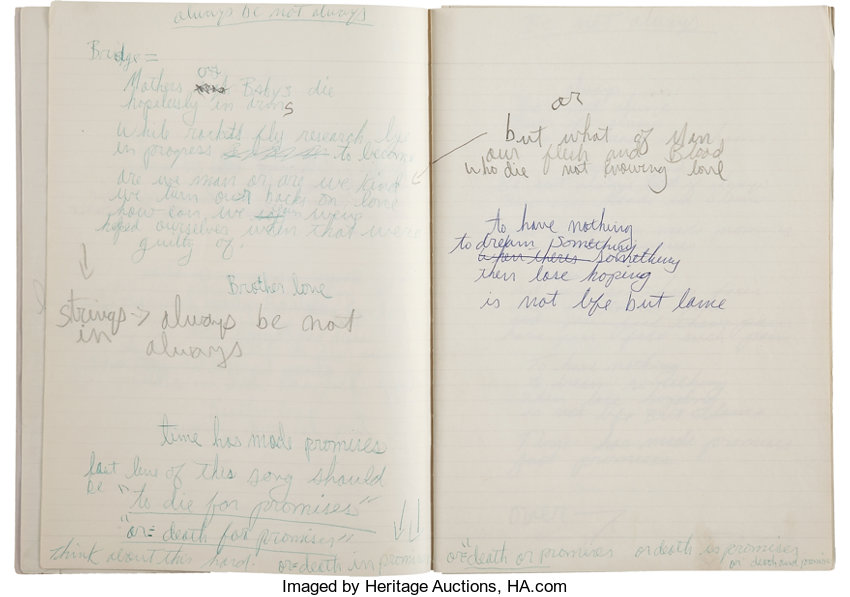 always be not always
Bridge =
or
Mothers and Babys die
hopelessly in arms
While rockets fly research lye
in progress to become
are we man or are we kind
we turn our backs on love
how can we
ourselves when that we're
guilty of
Brother love
strings -> always be not
in always
time has made promises
last line of this song should
be "to die for promises"
"or = death for promises"
think about this hard. or = death in promises
or
but what of Man
our flesh and Blood
who die not knowing love
to have nothing
to dream something
when theres something
then lose hoping
is not life but lame
or = "death or promises or death is promises
or death and promise
Imaged by Heritage Auctions, HA.com